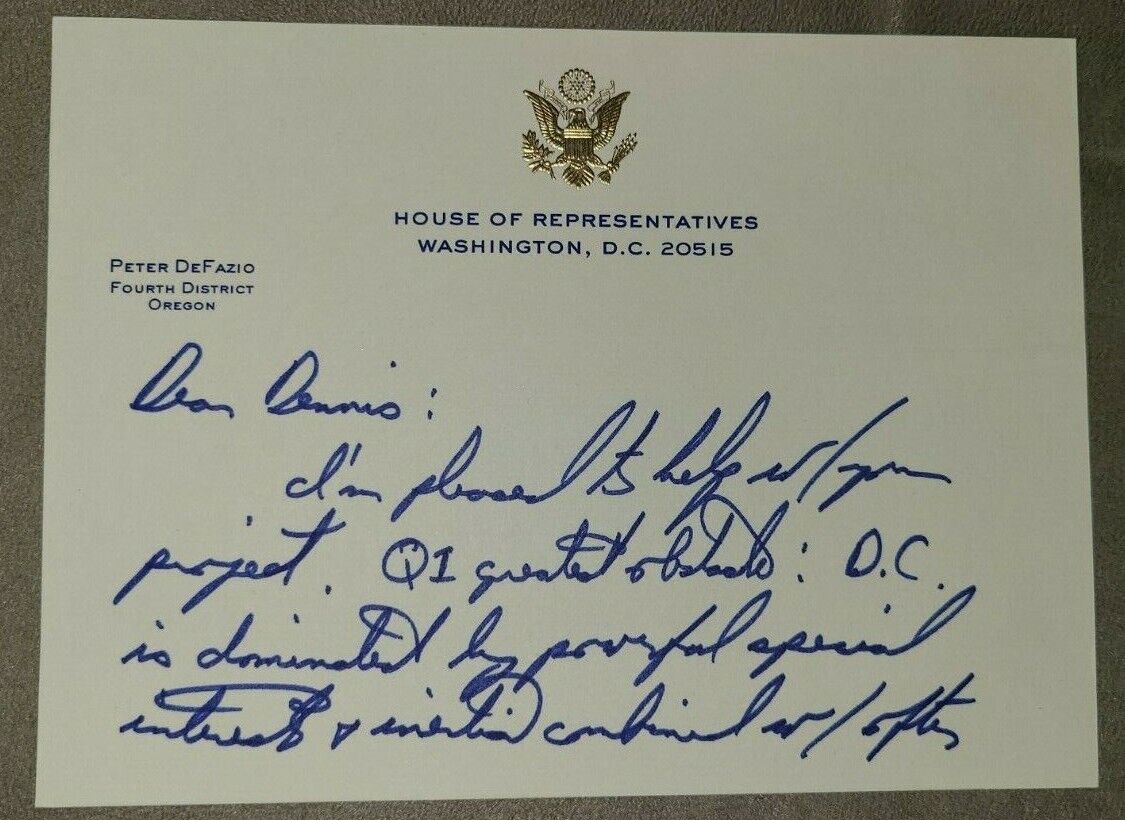 HOUSE OF REPRESENTATIVES
WASHINGTON, D.C. 20515
PETER DEFAZIO
FOURTH DISTRICT
OREGON
Dear Dennis:
I'm pleased to help w/your
project. Q1 greatest obstacle: D.C.
is dominated by powerful special
interests & inertia combined w/often